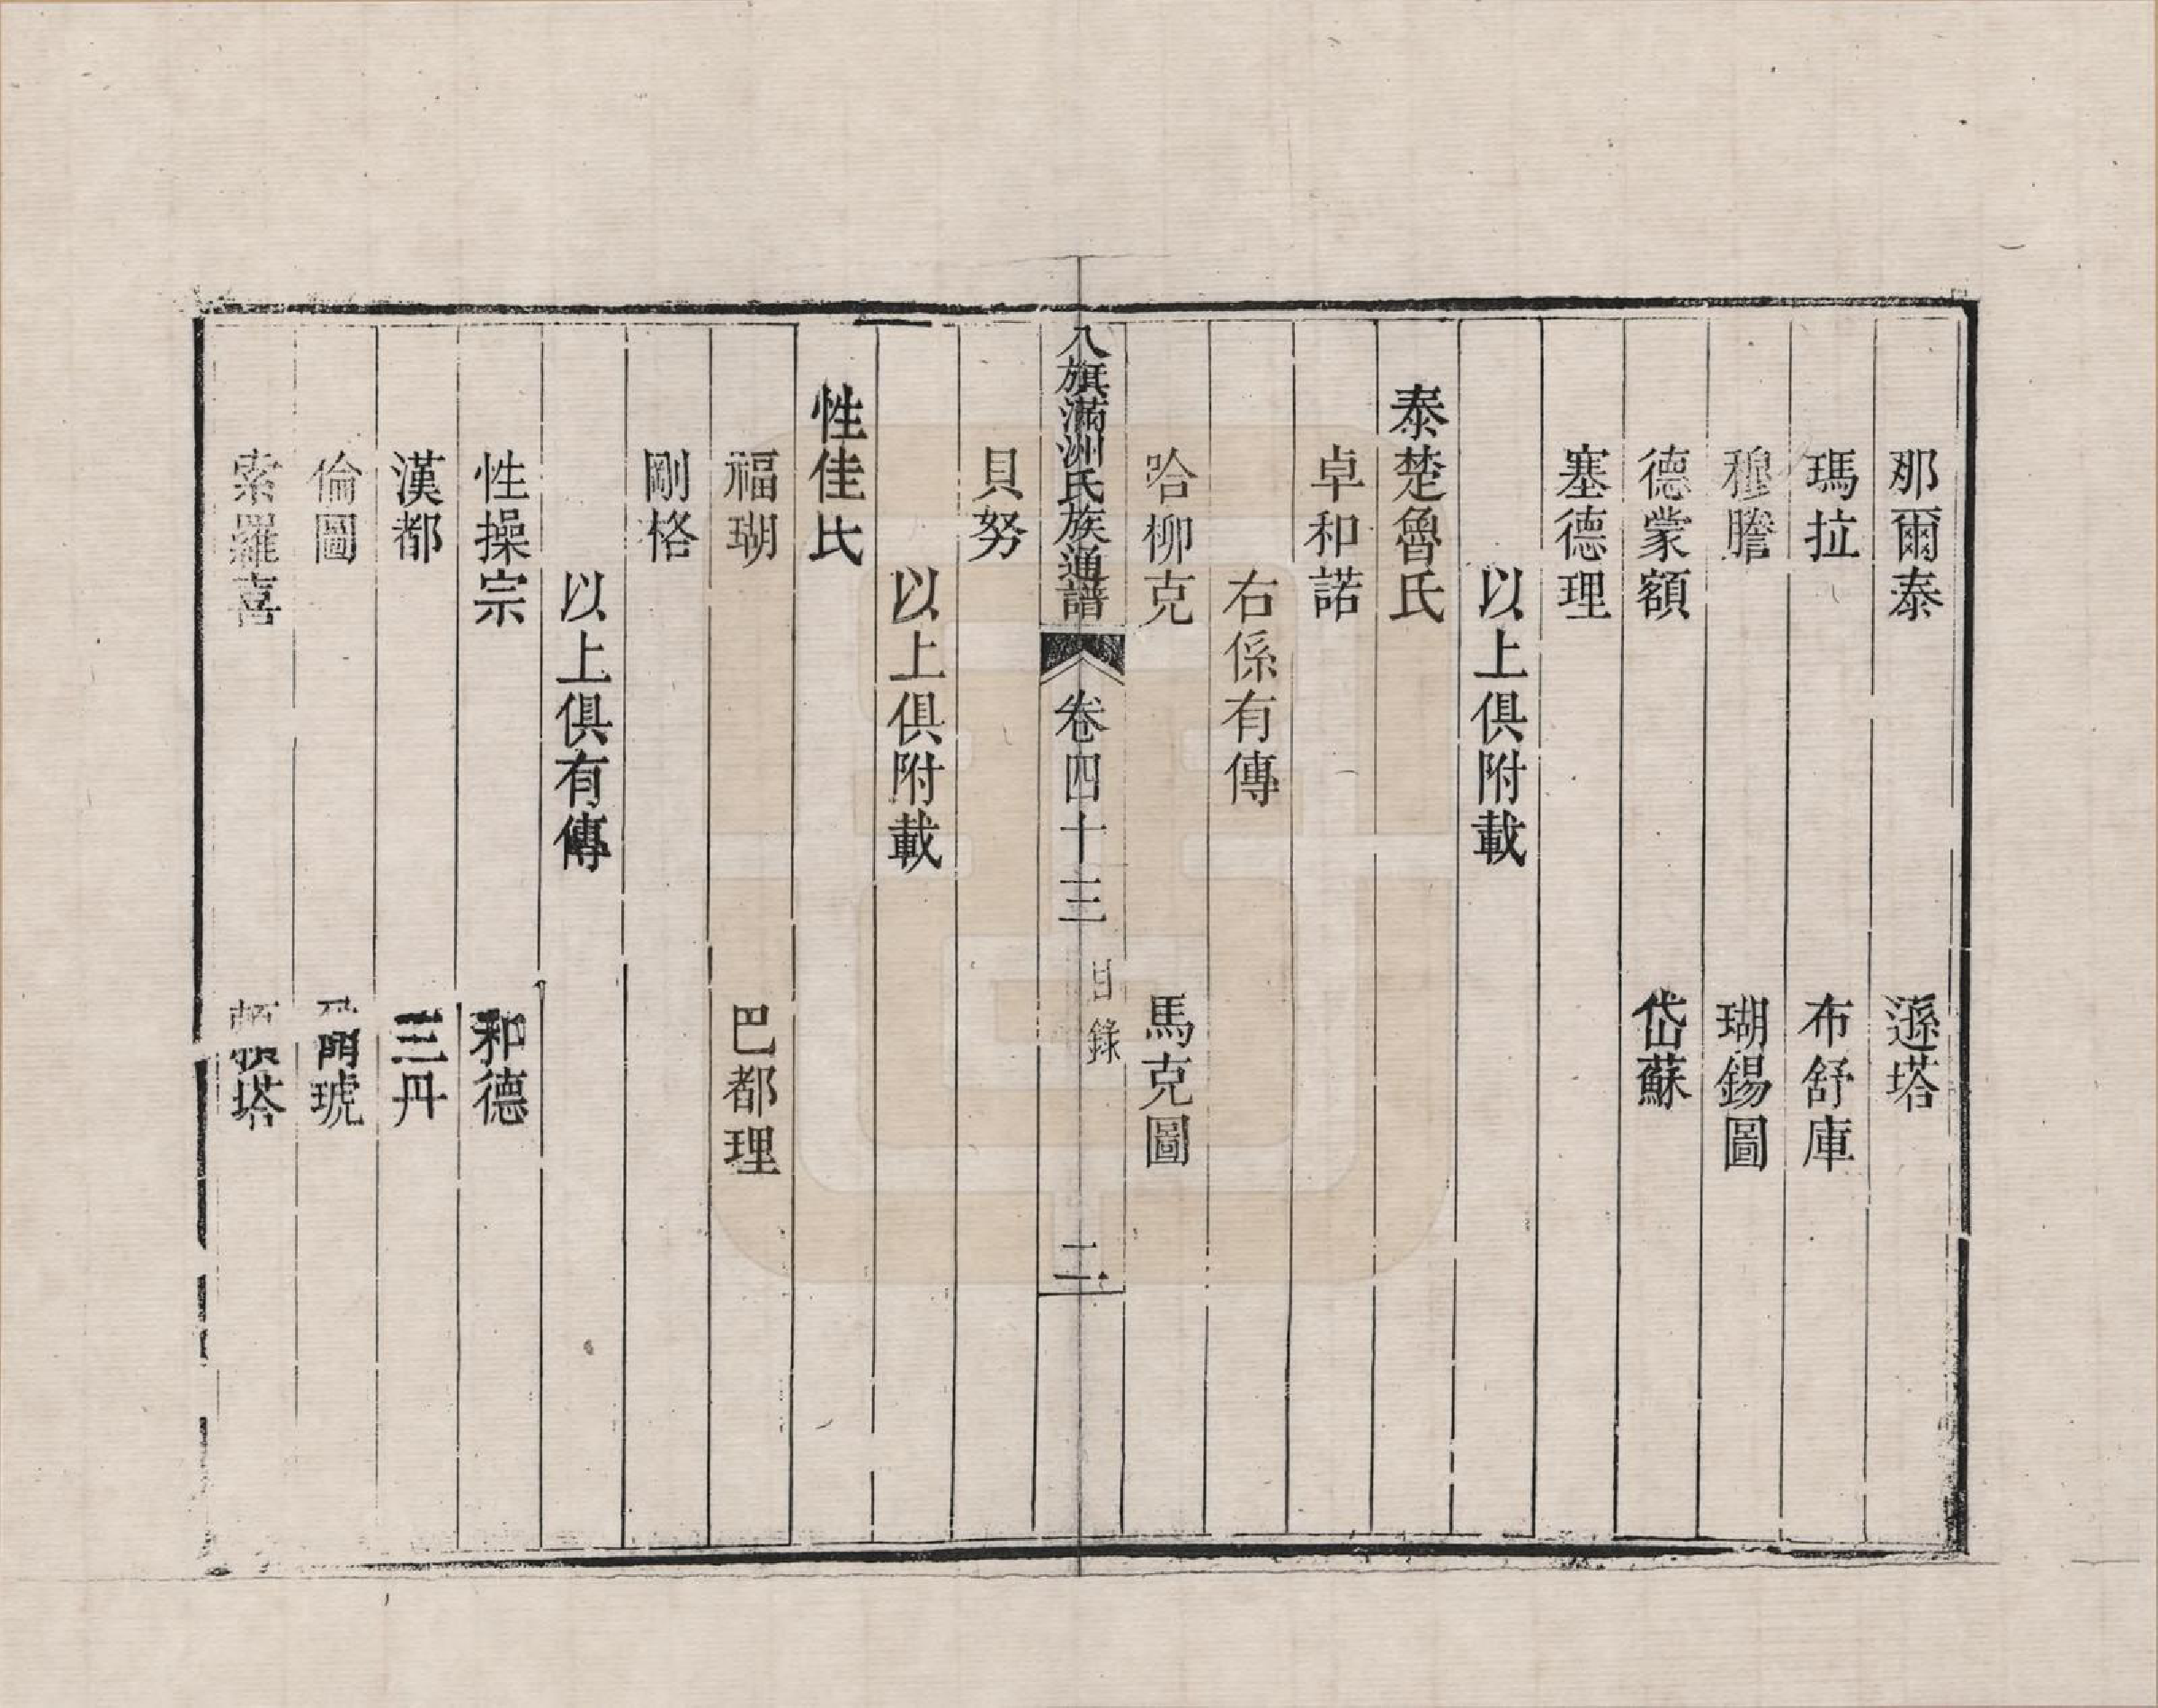 那爾泰　遜塔
瑪拉　布舒庫
穆謄　瑚錫圖
德蒙額　岱蘇
塞德理
以上俱附載
泰楚魯氏
卓和諾
右係有傳
哈柳克　馬克圖
八旗滿洲氏族通譜　卷四十三　目錄　二
貝努
以上俱附載
性佳氏
福瑚　巴都理
剛格
以上俱有傳
性操宗　和德
漢都　三丹
倫圖　琥
索羅喜　塔